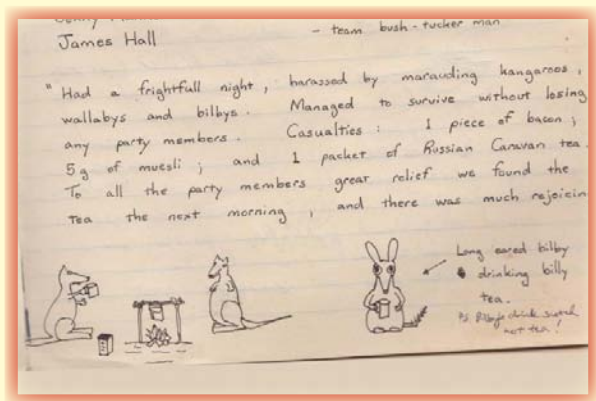 James Hall
- team bush-tucker man
"Had a frightfull night, harassed by marauding kangaroos,
wallabys and bilbys. Managed to survive without losing
any party members. Casualties: 1 piece of bacon;
5g of muesli; and 1 packet of Russian Caravan tea.
To all the party members great relief we found the
tea the next morning, and there was much rejoicin
Long eared bilby
drinking billy
tea.
PS Bilbys drink scotch
not tea!